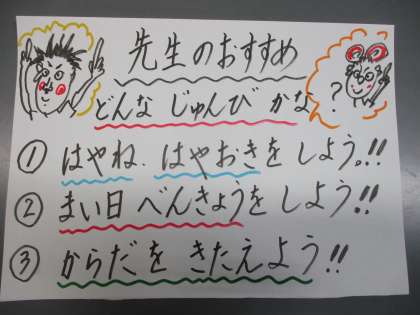 先生のおすすめ
どんな じゅんび かな?
① はやね、はやおきをしよう。!!
② まい日 べんきょうを しよう!!
③ からだを きたえよう!!